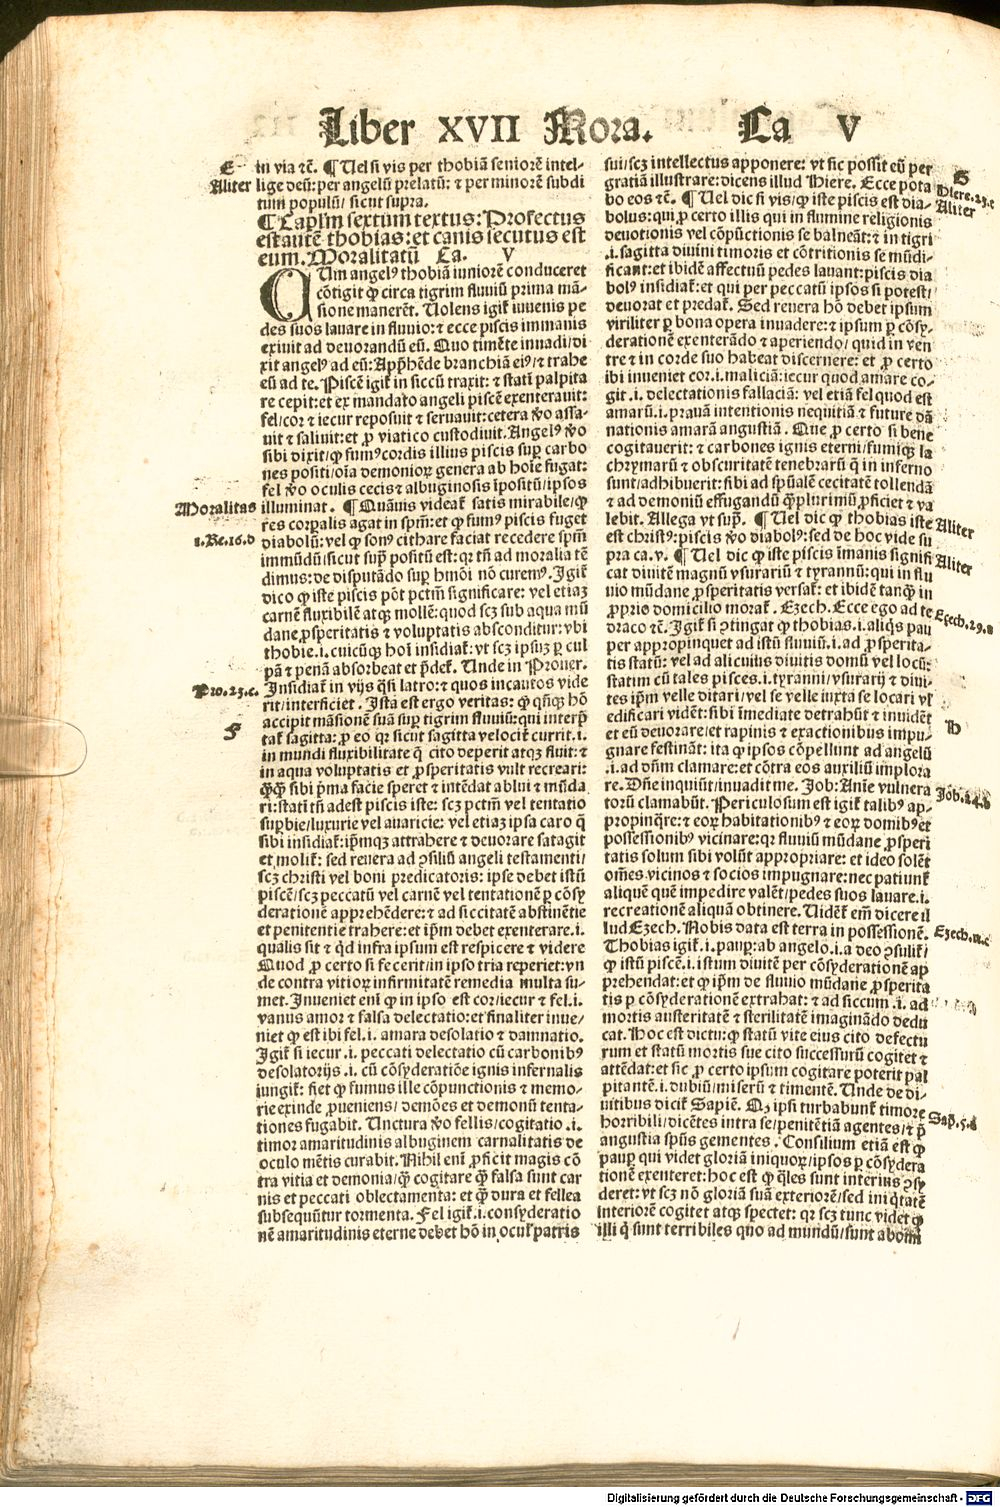 Liber XVII Mora. Ca V
E in via ⁊c̃. ¶ Uel si vis per thobiã seniorẽ intel-
Aliter lige deũ: per angelũ prelatũ: ⁊ per minorẽ subdi
tum populũ/ sicut supra.
¶ Capl'm sextum textus: Profectus
est autẽ thobias: et canis secutus est
eum. Moralitatũ Ca. V
CUm angelꝰ thobiã iuniorẽ conduceret
cõtigit ꝙ circa tigrim fluviũ prima mã-
sione manerẽt. Uolens igit̃ iuvenis pe
des suos lauare in fluvio: ⁊ ecce piscis immanis
exiuit ad deuorandũ eũ. Quo timẽte inuadi/di
xit angelꝰ ad eũ: App̃hẽde branchiã eiꝰ/ ⁊ trahe
eũ ad te. Piscẽ igit̃ in siccũ traxit: ⁊ statĩ palpita
re cepit: et ex mandato angeli piscẽ exenterauit:
fel/cor ⁊ iecur reposuit ⁊ seruauit: cetera ṽo assa-
uit ⁊ saliuit: et ꝓ viatico custodiuit. Angelꝰ ṽo
sibi dixit/ꝙ fumꝰ cordis illius piscis suꝑ carbo
nes positi/oĩa demonioꝝ genera ab hoĩe fugat:
fel ṽo oculis cecis ⁊ albuginosis ĩpositũ/ipsos
Moralitas illuminat. ¶ Quãuis videat̃ satis mirabile/ꝙ
res corꝑalis agat in spm̃: et ꝙ fumꝰ piscis fuget
1.Re.16.d diabolũ: vel ꝙ sonꝰ cithare faciat recedere spm̃
immũdũ/sicut supͣ positũ est: qꝛ tñ ad moralia tẽ
dimus: de disputãdo suꝑ hmõi nõ curemꝰ. Igit̃
dico ꝙ iste piscis põt pctm̃ significare: vel etiaꝫ
carnẽ fluxibilẽ atqꝫ mollẽ: quod scꝫ sub aqua mũ
dane ꝓsperitatis ⁊ voluptatis absconditur: vbi
thobie .i. cuicũqꝫ hoĩ insidiat̃: vt scꝫ ipsuꝫ ꝑ cul
pã ⁊ penã absorbeat et p̃det̃. Unde in Prouer.
Pro.23.c. Insidiat̃ in vijs q̃si latro: ⁊ quos incautos vide
rit/interficiet. Ista est ergo veritas: ꝙ qñqꝫ hõ
accipit mãsionẽ suã suꝑ tigrim fluuiũ: qui interp̃
F tat̃ sagitta: ꝓ eo qꝛ sicut sagitta velocit̃ currit .i.
in mundi fluxibilitate q̃ cito deperit atqꝫ fluit: ⁊
in aqua voluptatis et ꝓsperitatis vult recreari:
q̃q̃ sibi p̃ma facie speret ⁊ intẽdat ablui ⁊ mũda
ri: statĩ tñ adest piscis iste: scꝫ pctm̃ vel tentatio
suꝑbie/luxurie vel auaricie: vel etiaꝫ ipsa caro q̃
sibi insidiat̃: ip̃mqꝫ attrahere ⁊ deuorare satagit
et molit̃: sed reuera ad ꝯsiliũ angeli testamenti/
scꝫ christi vel boni predicatoris: ipse debet istũ
piscẽ/scꝫ peccatũ vel carnẽ vel tentationẽ ꝑ cõsy
derationẽ apprehẽdere: ⁊ ad siccitatẽ abstinẽtie
et penitentie trahere: et ip̃m debet exenterare .i.
qualis sit ⁊ qd̃ infra ipsum est respicere ⁊ videre
Quod ꝓ certo si fecerit/in ipso tria reperiet: vn
de contra vitioꝝ infirmitatẽ remedia multa su-
met. Inueniet enĩ ꝙ in ipso est cor/iecur ⁊ fel .i.
vanus amor ⁊ falsa delectatio: et finaliter inue/
niet ꝙ est ibi fel .i. amara desolatio ⁊ damnatio.
Igit̃ si iecur .i. peccati delectatio cũ carbonibꝰ
desolatorijs .i. cũ cõsyderatiõe ignis infernalis
iungit̃: fiet ꝙ fumus ille cõpunctionis ⁊ memo-
rie exinde ꝓueniens/ demões et demonũ tenta-
tiones fugabit. Unctura ṽo fellis/cogitatio .i.
timor amaritudinis albuginem carnalitatis de
oculo mẽtis curabit. Nihil enĩ ꝓficit magis cõ
tra vitia et demonia/q̃ cogitare q̃ falsa sunt car
nis et peccati oblectamenta: et q̃ dura et fellea
subsequũtur tormenta. Fel igit̃ .i. consyderatio
nẽ amaritudinis eterne debet hõ in ocul' patris
sui/scꝫ intellectus apponere: vt sic possit eũ per
G gratiã illustrare: dicens illud Hiere. Ecce pota
Hiere.23.c bo eos ⁊c̃. ¶ Uel dic si vis/ꝙ iste piscis est dia-
Aliter bolus: qui ꝓ certo illis qui in flumine religionis
deuotionis vel cõpũctionis se balneãt: ⁊ in tigri
.i. sagitta diuini timoris et cõtritionis se mũdi-
ficant: et ibidẽ affectuũ pedes lauant: piscis dia
bolꝰ insidiat̃: et qui per peccatũ ipsos si potest/
deuorat et predat̃. Sed reuera hõ debet ipsum
viriliter ꝑ bona opera inuadere: ⁊ ipsum ꝑ cõsy-
derationẽ exenterãdo ⁊ aperiendo/ quid in ven
tre ⁊ in corde suo habeat discernere: et ꝓ certo
ibi inueniet cor .i. maliciã: iecur quod amare co-
git .i. delectationis fallaciã: vel etiã fel quod est
amarũ .i. prauã intentionis nequitiã ⁊ future dã
nationis amarã angustiã. Que ꝓ certo si bene
cogitauerit: ⁊ carbones ignis eterni/fumiqꝫ la
chrymarũ ⁊ obscuritatẽ tenebrarũ q̃ in inferno
sunt/adhibuerit: sibi ad spũalẽ cecitatẽ tollendã
⁊ ad demoniũ effugandũ q̃plurimũ ꝓficiet ⁊ va
lebit. Allega vt supͣ. ¶ Uel dic ꝙ thobias iste
Aliter est christꝰ: piscis ṽo diabolꝰ: sed de hoc vide su
pra ca. v. ¶ Uel dic ꝙ iste piscis ĩmanis signifi
Aliter cat diuitẽ magnũ vsurariũ ⁊ tyrannũ: qui in flu
uio mũdane ꝓsperitatis versat̃: et ibidẽ tanq̃ in
ꝓprio domicilio morat̃. Ezech. Ecce ego ad te
Ezech.29.a draco ⁊c̃. Igit̃ si ꝯtingat ꝙ thobias .i. aliqs̃ pau
per appropinquet ad istũ fluuiũ .i. ad ꝓsperita-
tis statũ: vel ad alicuius diuitis domũ vel locũ:
statim cũ tales pisces .i. tyranni/vsurarij ⁊ diui-
tes ip̃m velle ditari/ vel se velle iuxta se locari vl'
edificari vidẽt: sibi ĩmediate detrahũt ⁊ inuidẽt
H et eũ deuorare/et rapinis ⁊ exactionibus impu-
gnare festinãt: ita ꝙ ipsos cõpellunt ad angelũ
.i. ad dñm clamare: et cõtra eos auxiliũ implora
re. Dñe inquiũt/inuadit me. Job: Anĩe vulnera
Job.24.b torũ clamabũt. Periculosum est igit̃ talibꝰ ap-
propinq̃re: ⁊ eoꝝ habitationibꝰ ⁊ eoꝝ domibꝰ et
possessionibꝰ vicinare: qꝛ fluuiũ mũdane ꝓsperi
tatis solum sibi volũt appropriare: et ideo solẽt
om̃es vicinos ⁊ socios impugnare: nec patiunt̃
aliquẽ quẽ impedire valẽt/pedes suos lauare .i.
recreationẽ aliquã obtinere. Uidẽt̃ em̃ dicere il
lud Ezech. Nobis data est terra in possessionẽ.
Ezech.11.c Thobias igit̃ .i. paup̱: ab angelo .i. a deo ꝯsulit̃/
ꝙ istũ piscẽ .i. istum diuitẽ per cõsyderationẽ ap
prehendat: et ꝙ ip̃m de fluuio mũdane ꝓsperita
tis ꝑ cõsyderationẽ extrahat: ⁊ ad siccum .i. ad
mortis austeritatẽ ⁊ sterilitatẽ imaginãdo dedu
cat. Hoc est dictu: ꝙ statũ vite eius cito defectu
rum et statũ mortis sue cito successurũ cogitet ⁊
attẽdat: et sic ꝓ certo ipsum cogitare poterit pal
pitantẽ .i. dubiũ/miserũ ⁊ timentẽ. Unde de di-
uitibus dicit̃ Sapiẽ. Qꝫ ipsi turbabunt̃ timore
Sap.5.a horribili/dicẽtes intra se/penitẽtiã agentes/⁊ p̃
angustia spũs gementes. Consilium etiã est ꝙ
paup̱ qui videt gloriã iniquoꝝ/ipsos ꝑ cõsydera
tionẽ exenteret: hoc est ꝙ q̃les sunt interius ꝯsy
deret: vt scꝫ nõ gloriã suã exteriorẽ/sed iniq̃tatẽ
interiorẽ cogitet atqꝫ spectet: qꝛ scꝫ tunc videt ꝙ
illi q̃ sunt terribiles quo ad mundũ/sunt abomi
Digitalisierung gefördert durch die Deutsche Forschungsgemeinschaft - DFG